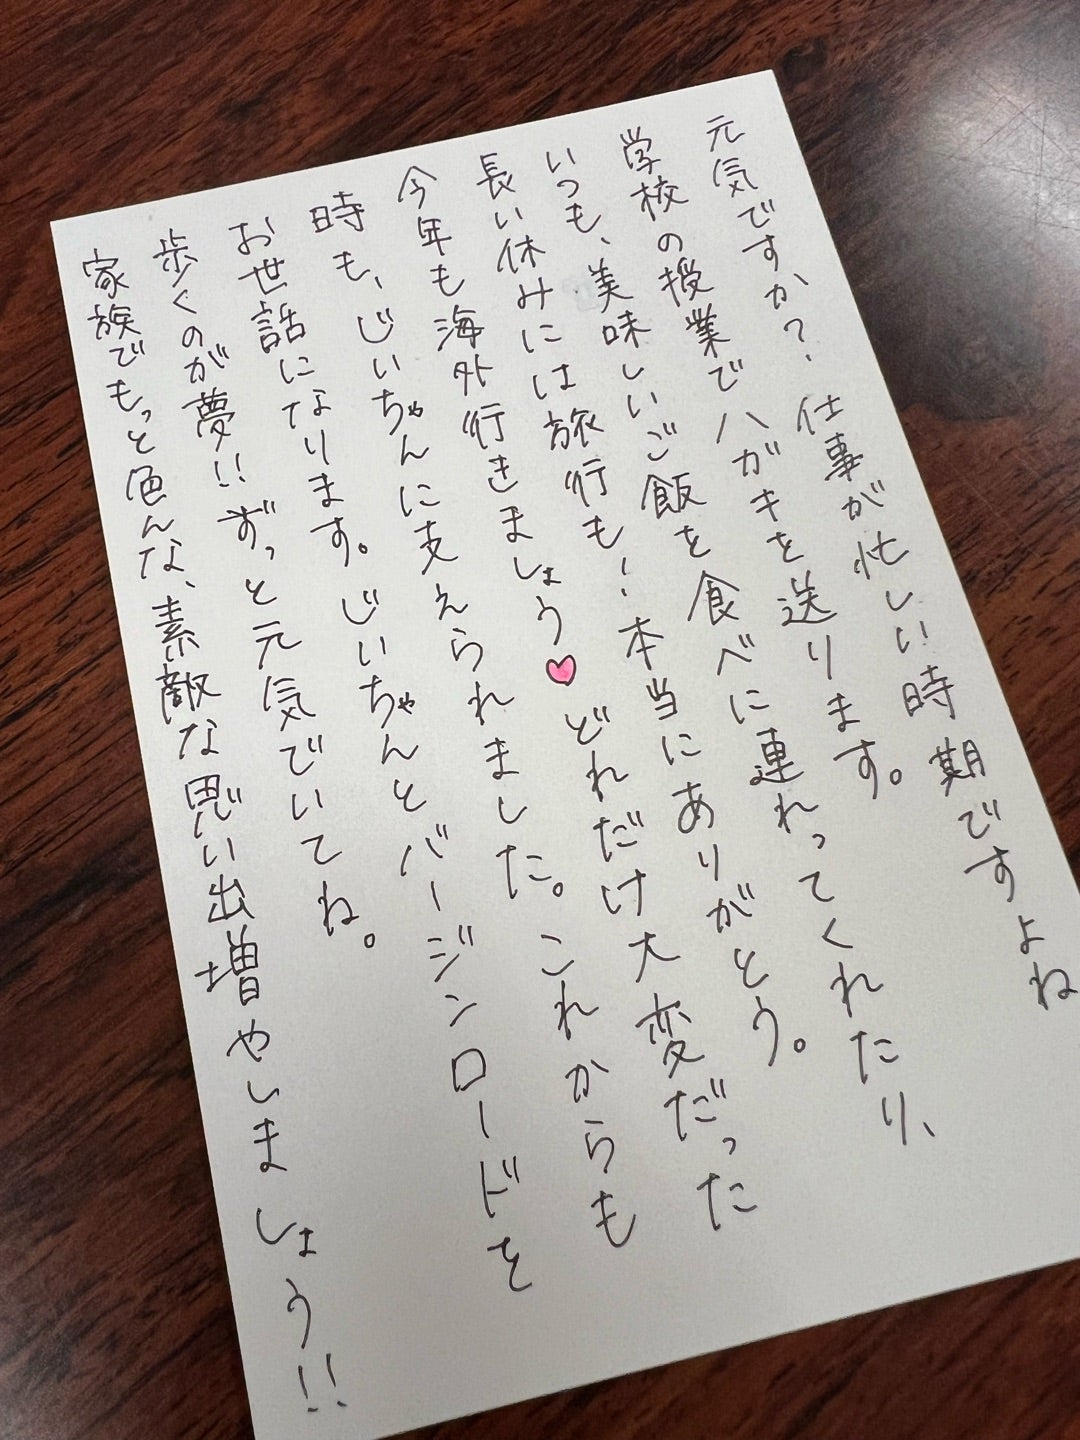 元気ですか？仕事が忙しい時期ですよね
学校の授業でハガキを送ります。
いつも、美味しいご飯を食べに連れってくれたり、
長い休みには旅行も！本当にありがとう。
今年も海外行きましょう♥どれだけ大変だった
時も、じいちゃんに支えられました。これからも
お世話になります。じいちゃんとバージンロードを
歩くのが夢!!ずっと元気でいてね。
家族でもっと色んな、素敵な思い出増やしましょう!!